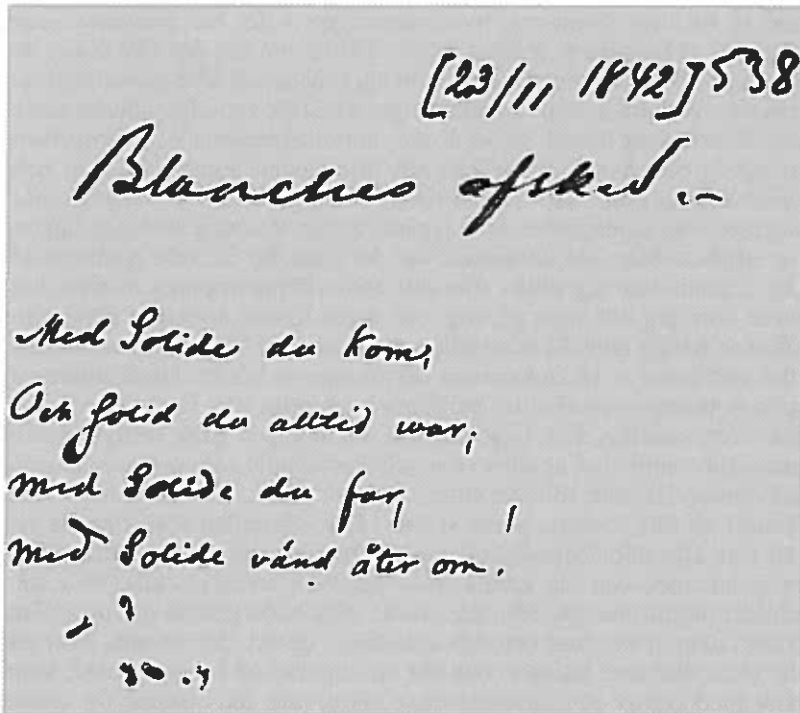 [23/11 1842] 538
Blanches afsked.-
Med Solide du kom,
Och solid du alltid war,
med Solide du far,
med Solide vänd åter om!